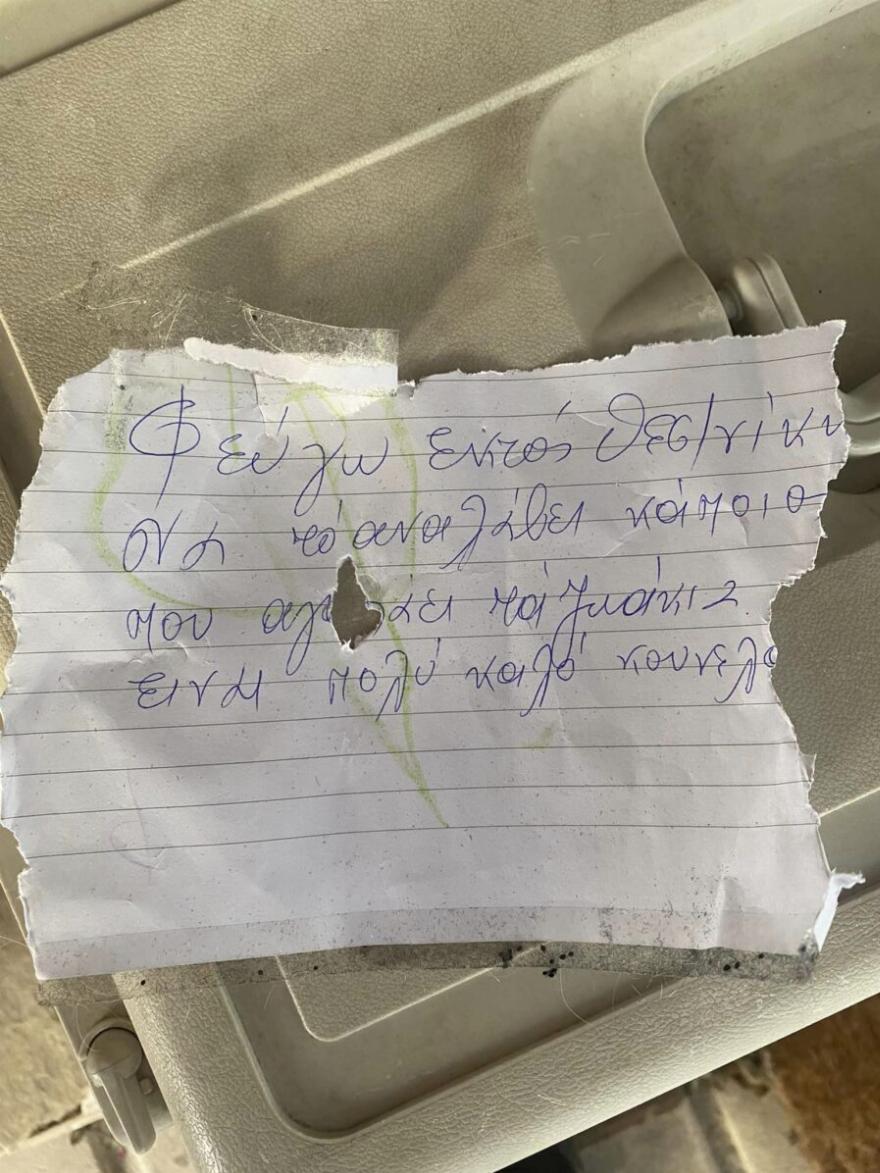 Φεύγω εκτός Θεσ/νίκη
να τό αναλάβει κάποιο
που αγ άει τά ζωάκια
ειναι πολύ καλό κουνελ